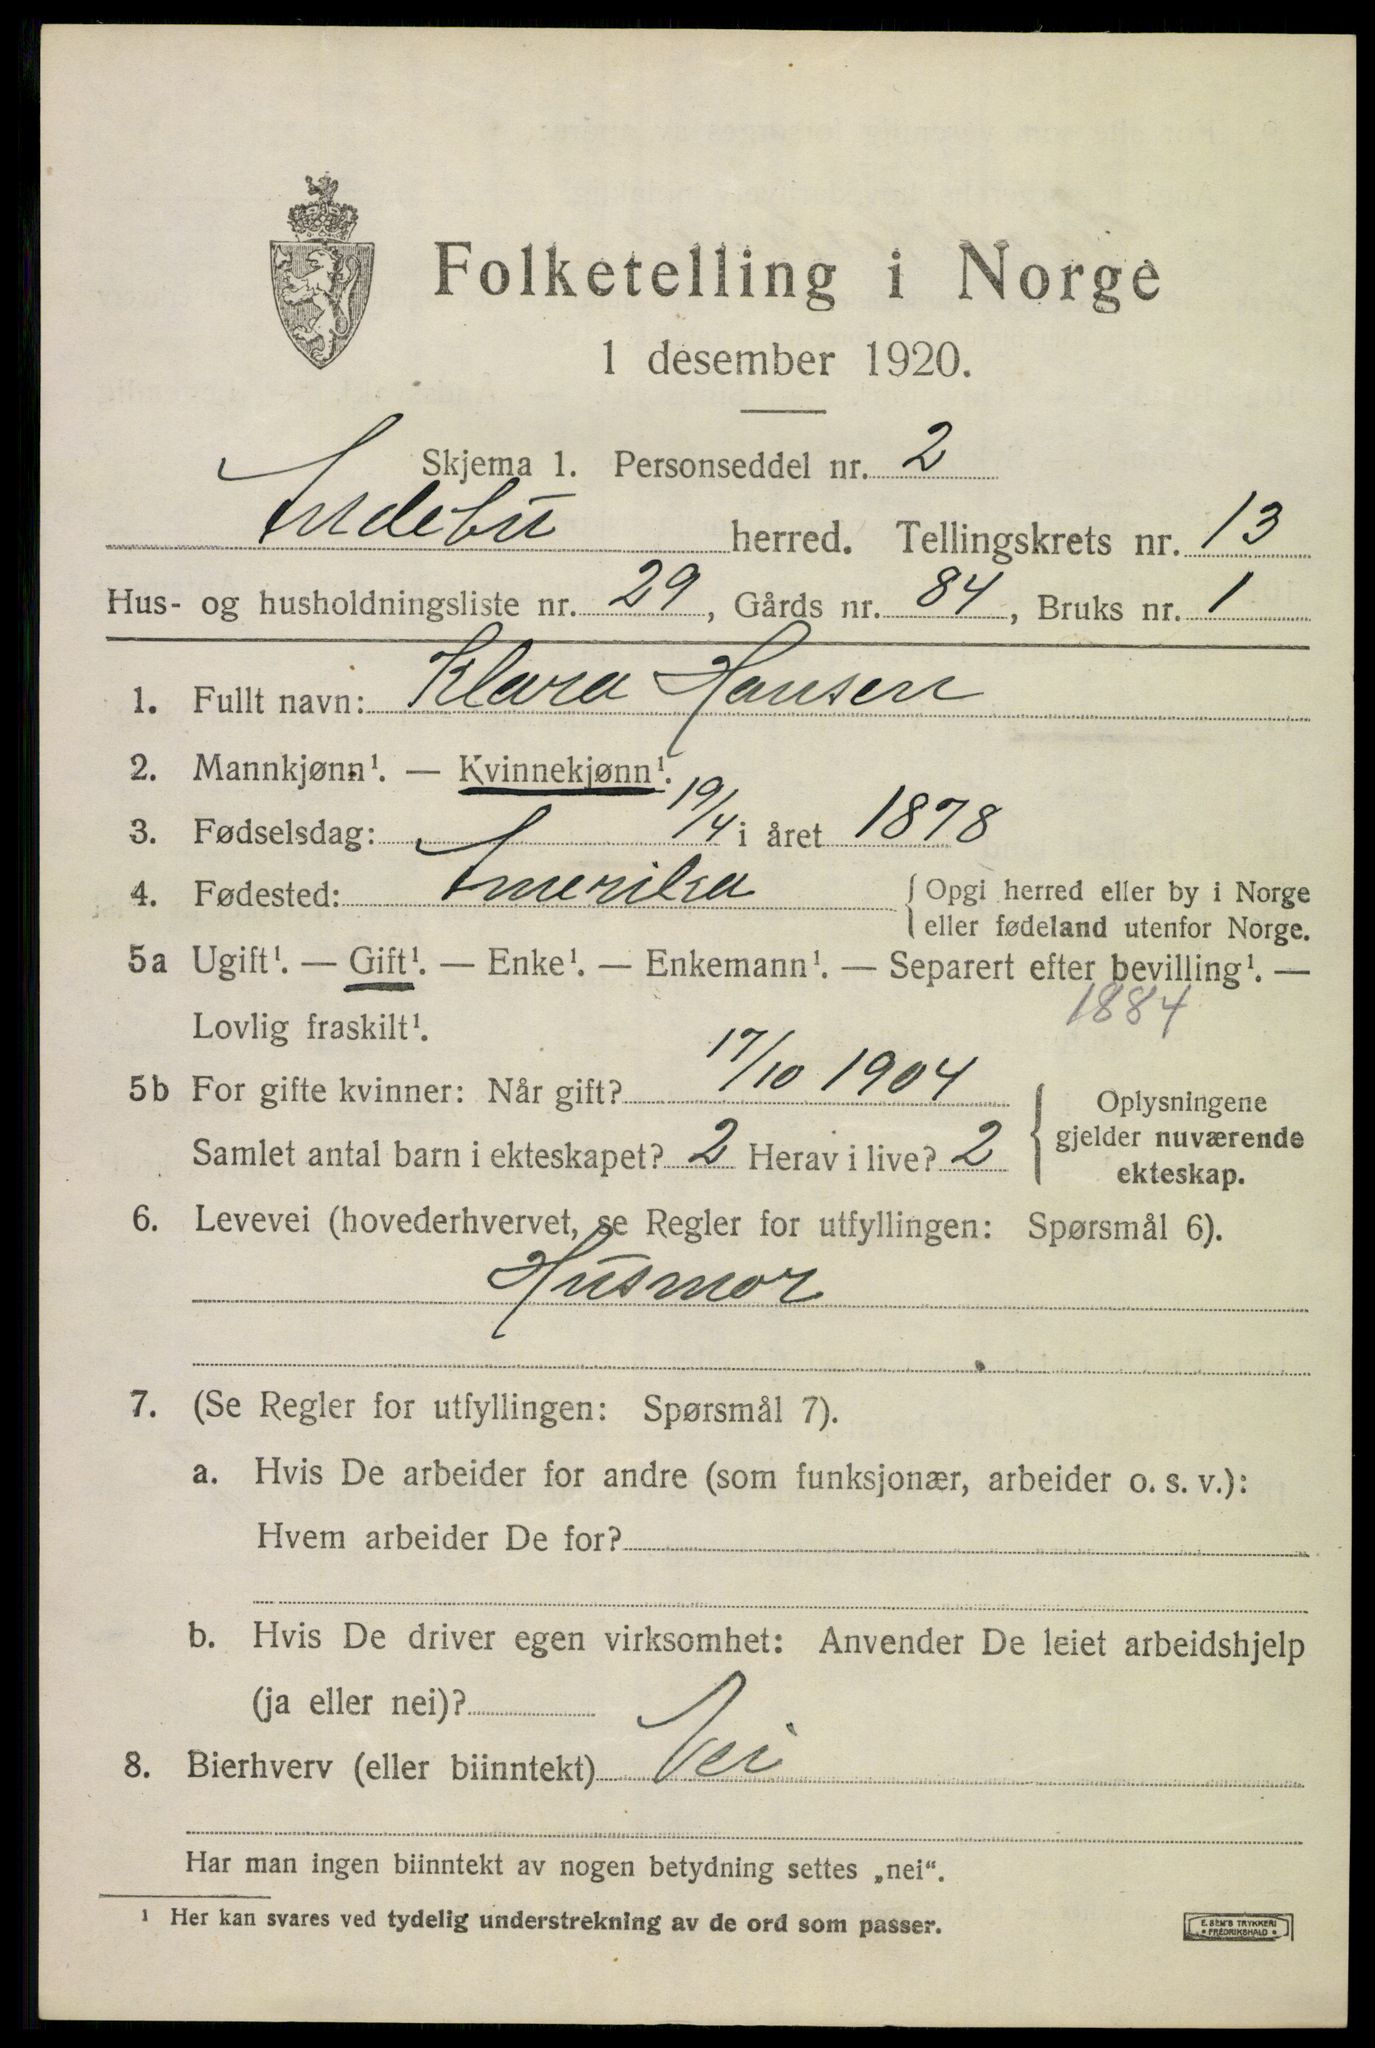 Folketelling i Norge
1 desember 1920.
Skjema 1. Personseddel nr. 2
Andebu herred. Tellingskrets nr. 13
Hus- og husholdningsliste nr. 29, Gårds nr. 84, Bruks nr. 1
1. Fullt navn: Klara Hansen
2. Mannkjønn¹. — Kvinnekjønn¹.
3. Fødselsdag: 19/4 i året 1878
4. Fødested: Amerika { Opgi herred eller by i Norge
eller fødeland utenfor Norge.
5a Ugift¹. — Gift¹. — Enke¹. — Enkemann¹. — Separert efter bevilling¹. —
1884
Lovlig fraskilt¹.
5b For gifte kvinner: Når gift? 17/10 1904
Samlet antal barn i ekteskapet? 2 Herav i live? 2
{ Oplysningene
gjelder nuværende
ekteskap.
6. Levevei (hovederhvervet, se Regler for utfyllingen: Spørsmål 6).
Husmor
7. (Se Regler for utfyllingen: Spørsmål 7).
a. Hvis De arbeider for andre (som funksjonær, arbeider o. s. v.):
Hvem arbeider De for?
b. Hvis De driver egen virksomhet: Anvender De leiet arbeidshjelp
(ja eller nei)?
8. Bierhverv (eller biinntekt) Nei
Har man ingen biinntekt av nogen betydning settes „nei“.
¹ Her kan svares ved tydelig understrekning av de ord som passer.
E. SEM'S TRYKKERI
• FREDRIKSHALD •